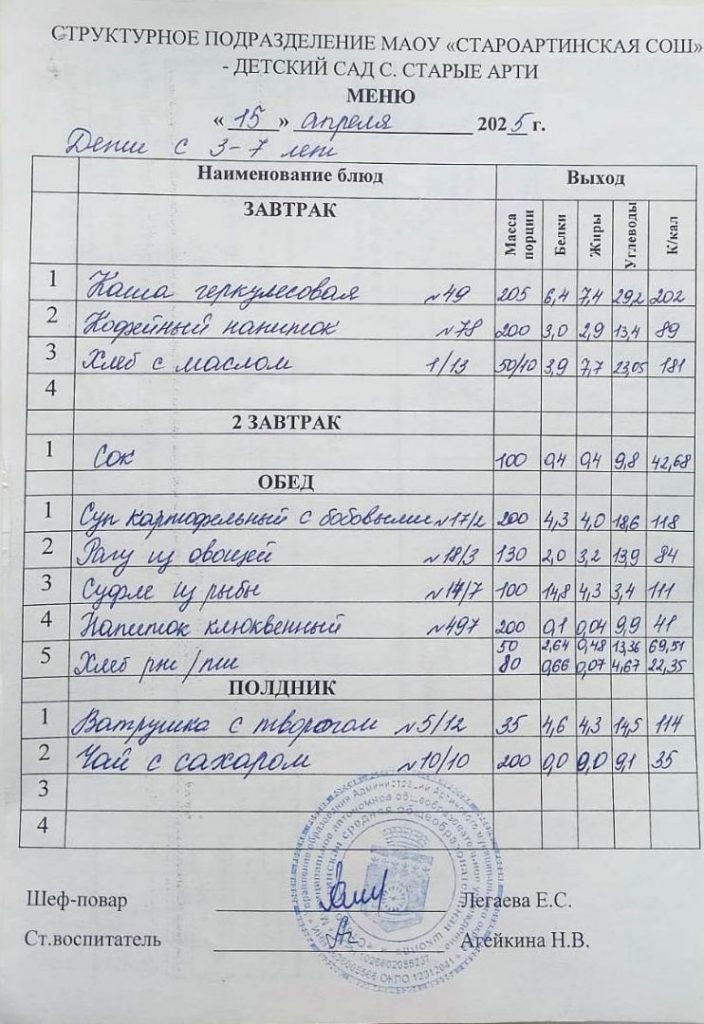 СТРУКТУРНОЕ ПОДРАЗДЕЛЕНИЕ МАОУ «СТАРОАРТИНСКАЯ СОШ»
- ДЕТСКИЙ САД С. СТАРЫЕ АРТИ
МЕНЮ
« 15 » апреля 2025 г.
Дети с 3-7 лет
Наименование блюд Выход
ЗАВТРАК Масса порции Белки Жиры Углеводы К/кал
1 Каша геркулесовая №49 205 6,4 7,4 29,2 202
2 Кофейный напиток №78 200 3,0 2,9 13,4 89
3 Хлеб с маслом 1/13 50/10 3,9 7,7 23,05 181
4
2 ЗАВТРАК
1 Сок 100 0,4 0,4 9,8 42,68
ОБЕД
1 Суп картофельный с бобовыми №17/2 200 4,3 4,0 18,6 118
2 Рагу из овощей №18/3 130 2,0 3,2 13,9 84
3 Суфле из рыбы №14/7 100 14,8 4,3 3,4 111
4 Напиток клюквенный №497 200 0,1 0,04 9,9 41
5 Хлеб рж/пш 50 2,64 0,48 13,36 69,51
80 0,66 0,07 4,67 22,35
ПОЛДНИК
1 Ватрушка с творогом №5/12 35 4,6 4,3 14,5 114
2 Чай с сахаром №10/10 200 0,0 0,0 9,1 35
3
4
Шеф-повар Легаева Е.С.
Ст.воспитатель Агейкина Н.В.